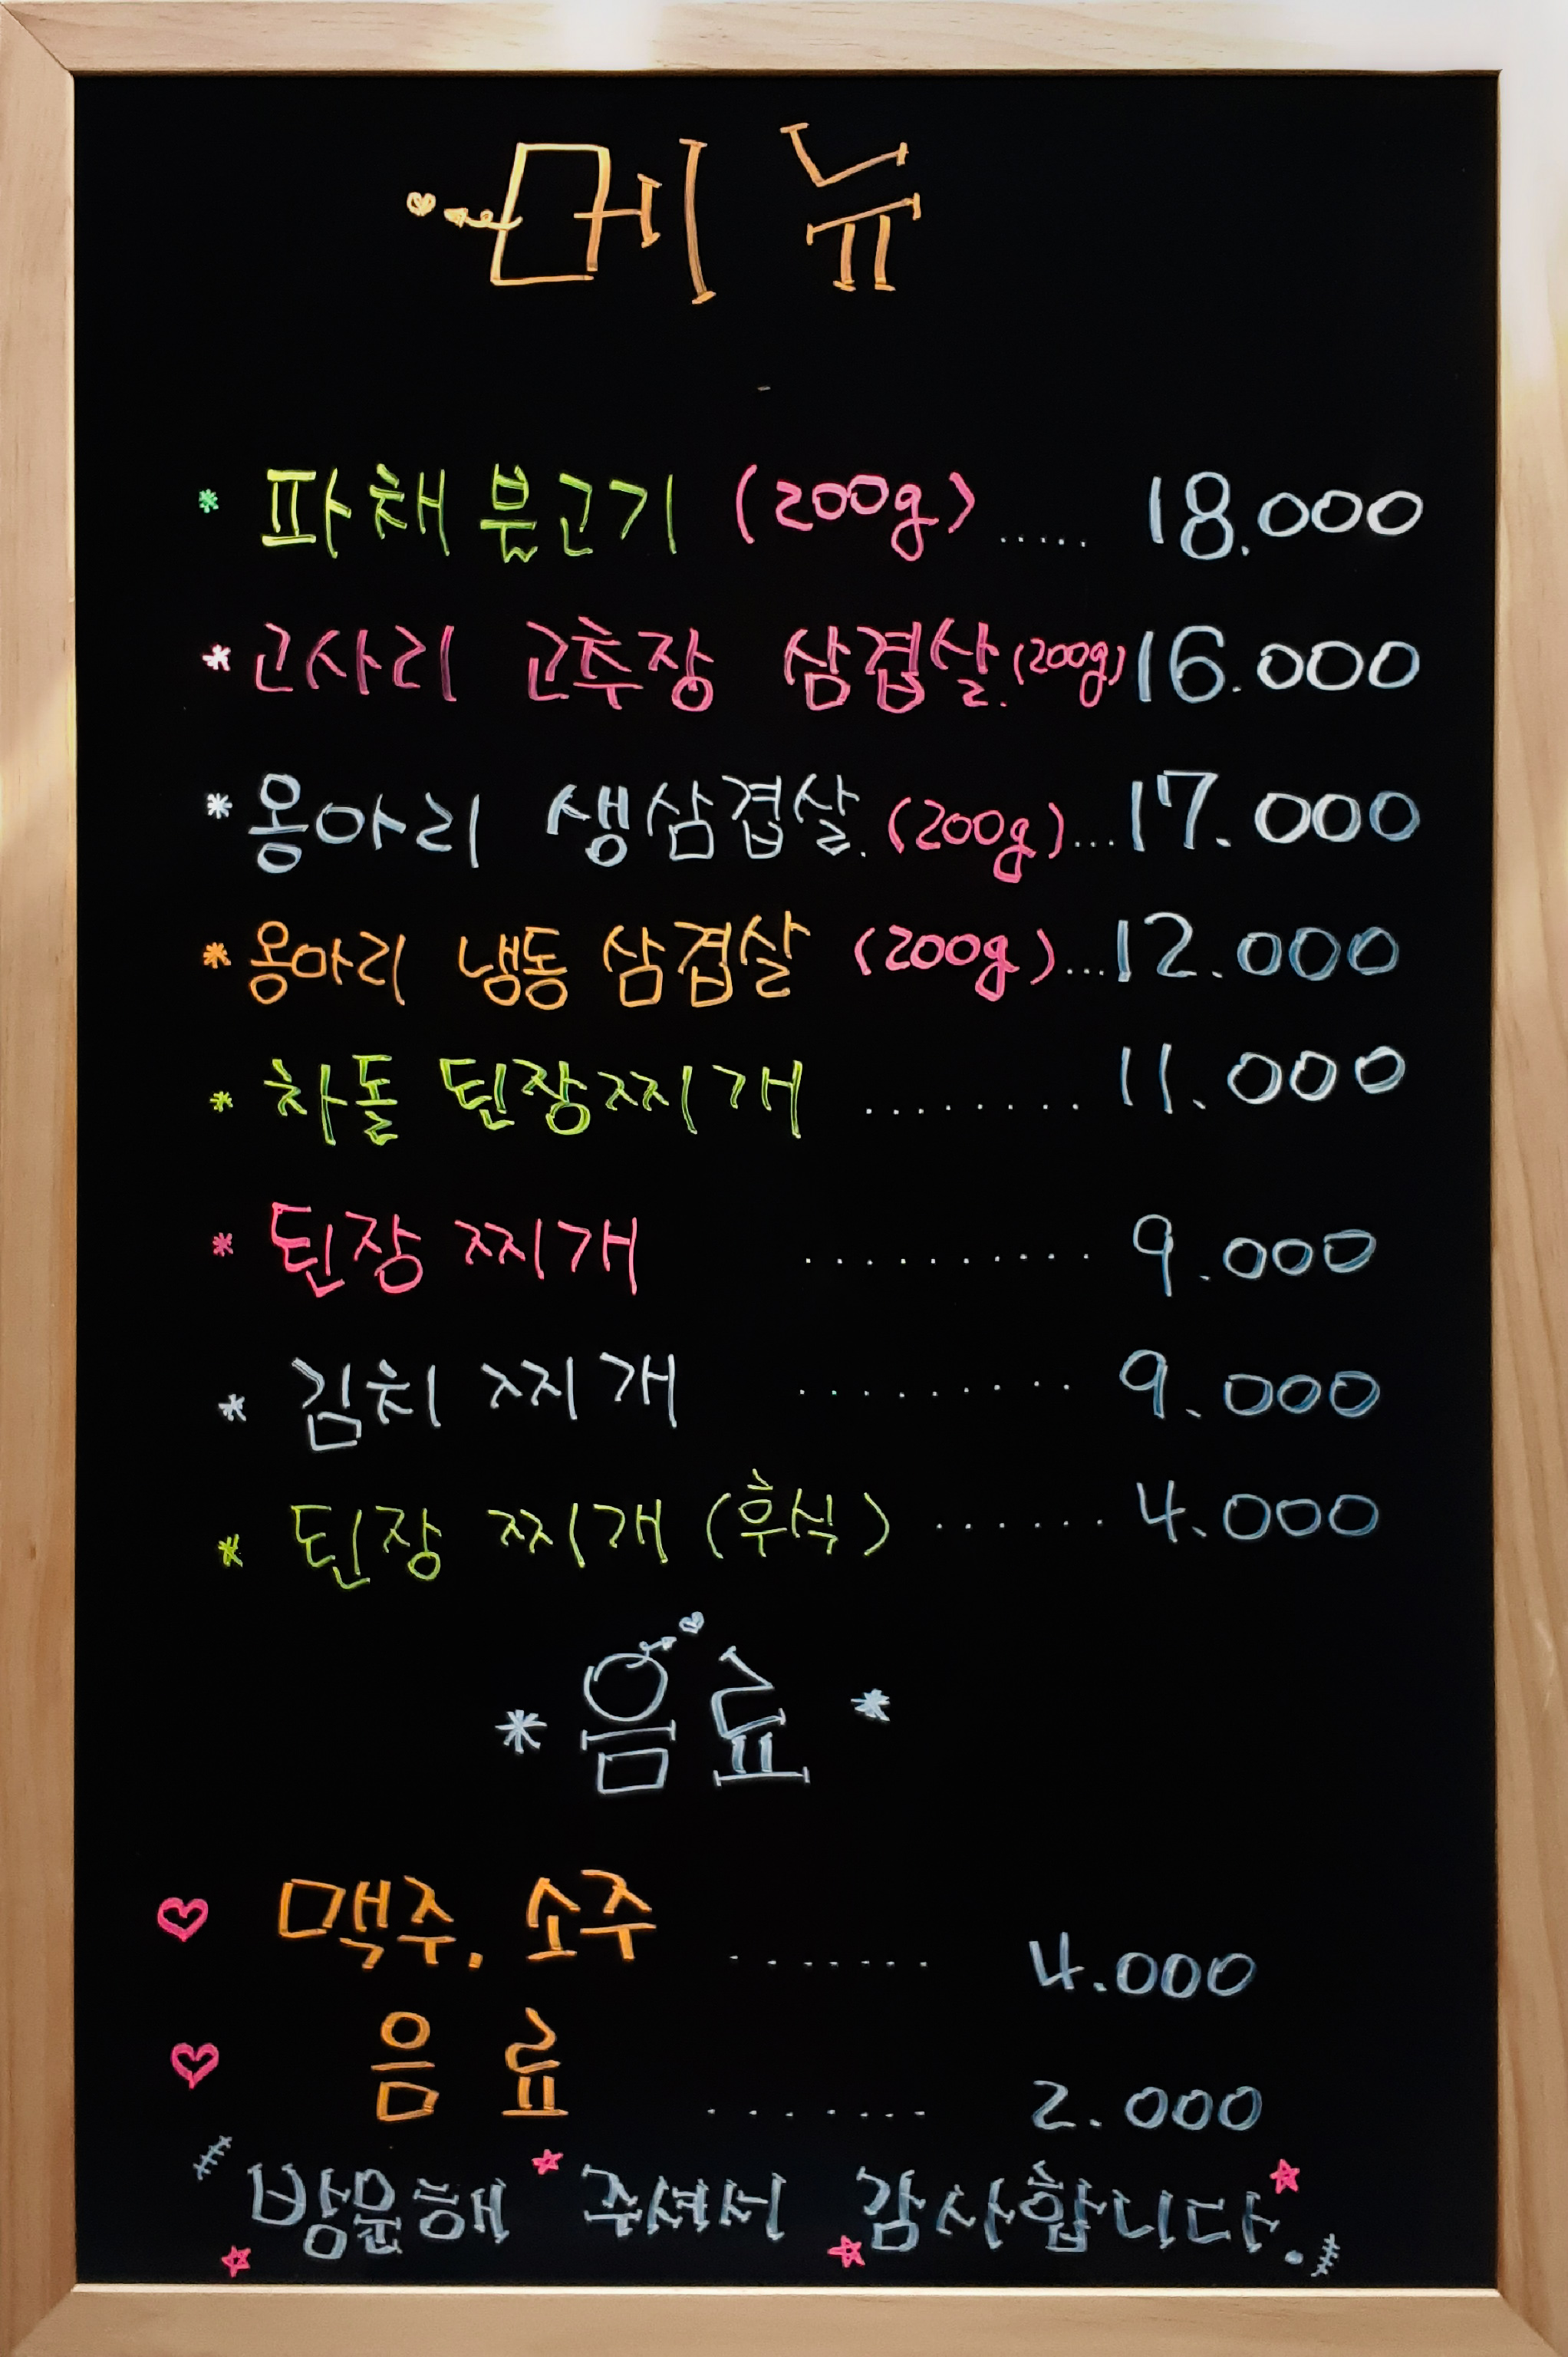 메뉴
* 파채 불고기 (200g) ..... 18.000
* 고사리 고추장 삼겹살.(200g) 16.000
* 옹아리 생삼겹살.(200g)...17.000
* 옹아리 냉동 삼겹살 (200g)...12.000
* 차돌 된장찌개 ......... 11.000
* 된장 찌개 .......... 9.000
* 김치 찌개 ......... 9.000
* 된장 찌개 (후식) ...... 4.000
* 음료 *
♡ 맥주. 소주 ....... 4.000
♡ 음료 ....... 2.000
방문해 주셔서 감사합니다.